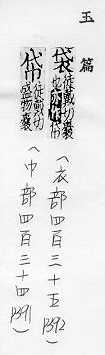 玉篇
帒徒戴切盛物囊
〈衣部四百三十五1392〉
〈巾部四百三十四1391〉